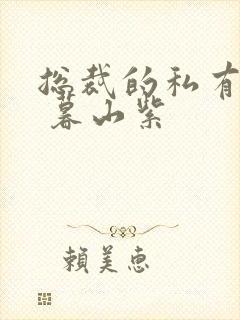 总裁的私有
暮山紫
賴美惠